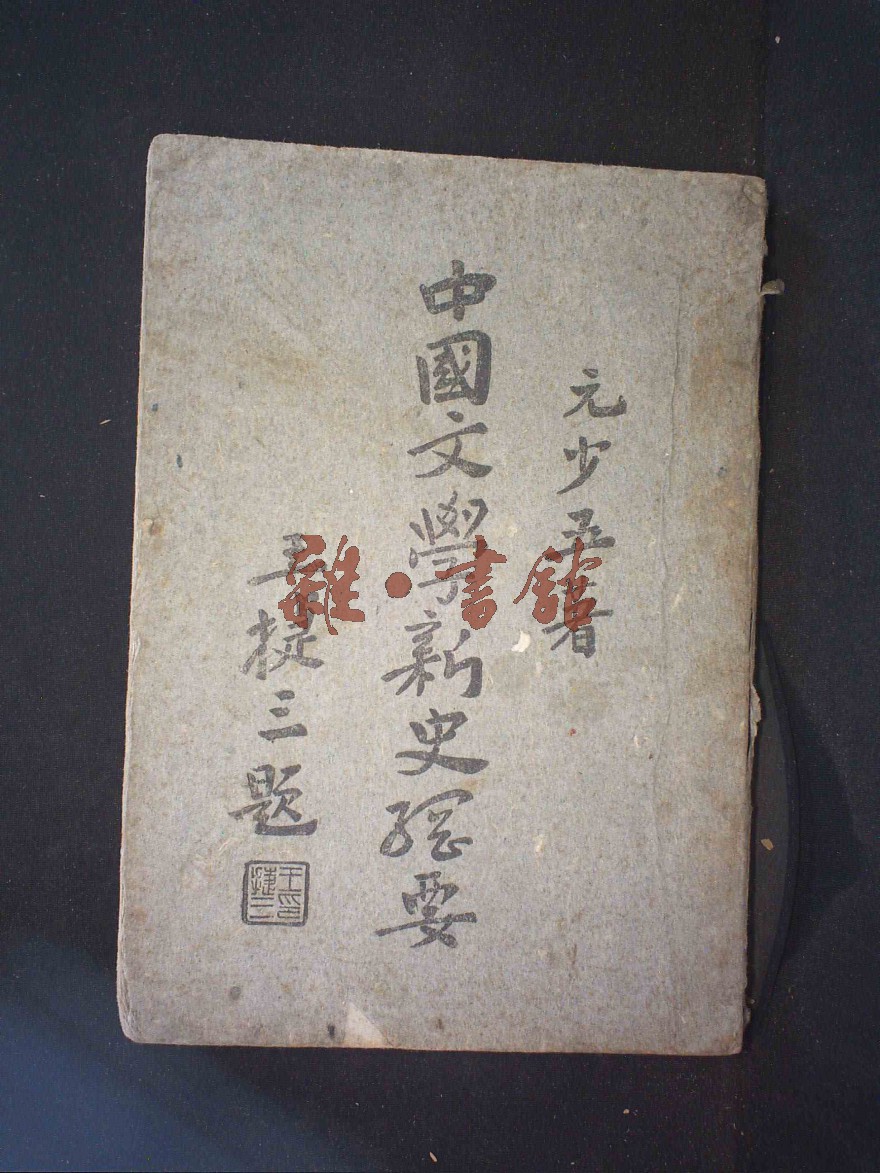 元少五著
中國文學新史綱要
王捷三題
王印捷三
雜·書館